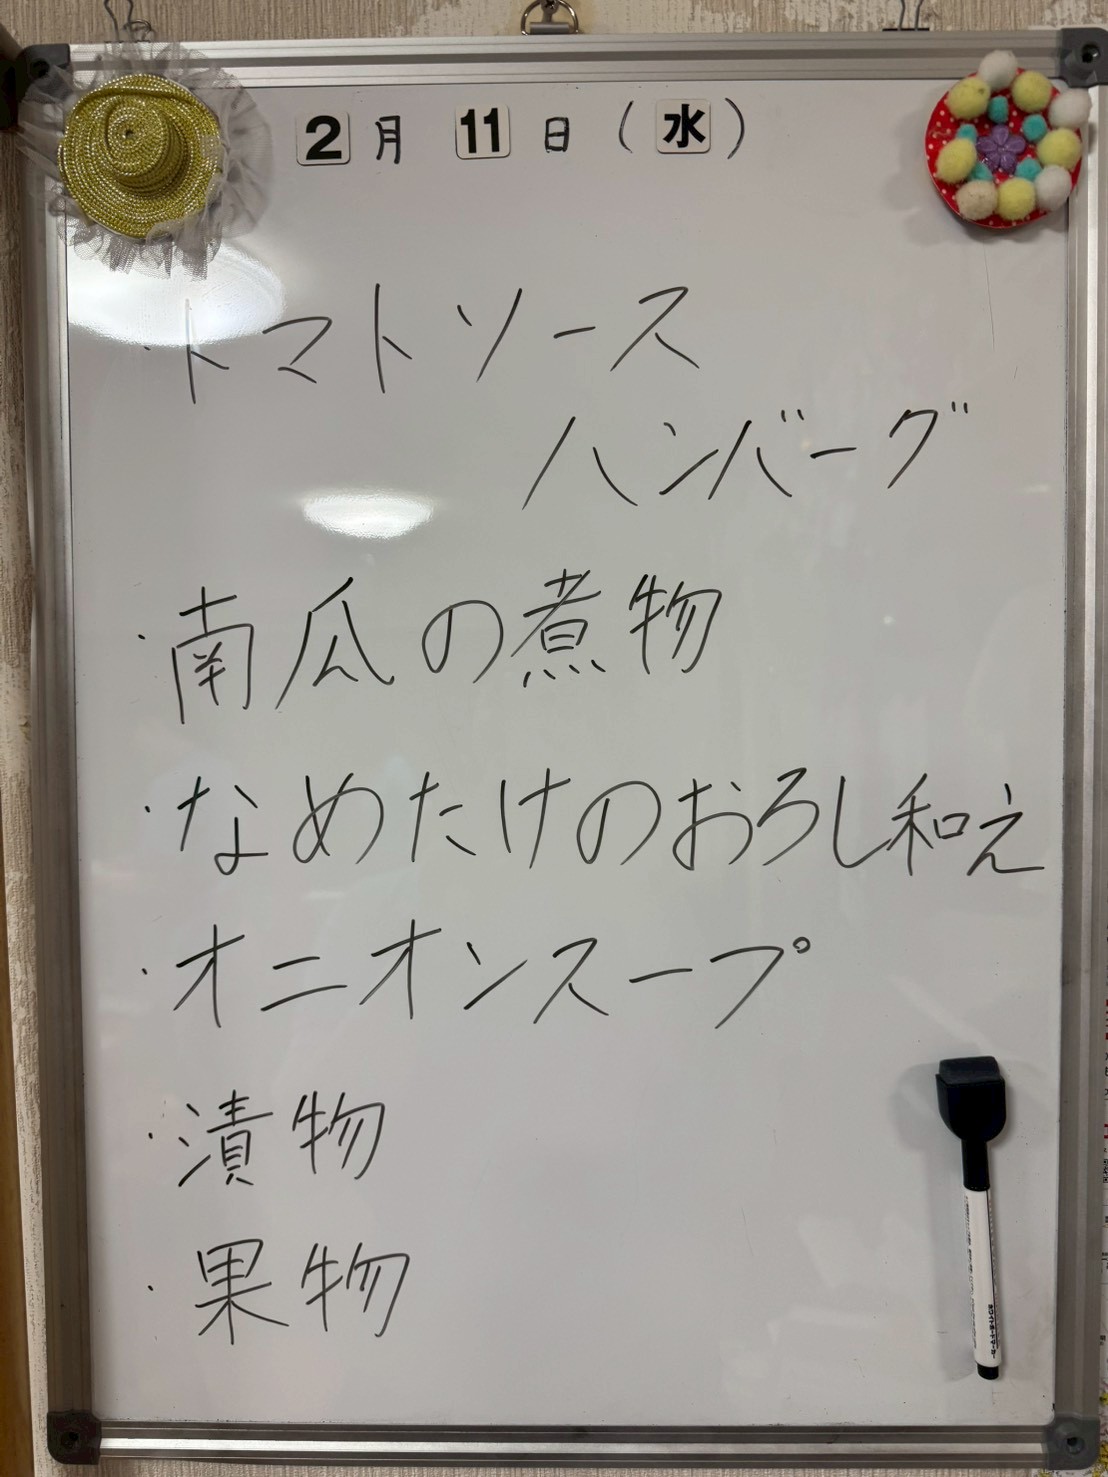 2月 11日(水)
・トマトソース
ハンバーグ
・南瓜の煮物
・なめたけのおろし和え
・オニオンスープ
・漬物
・果物